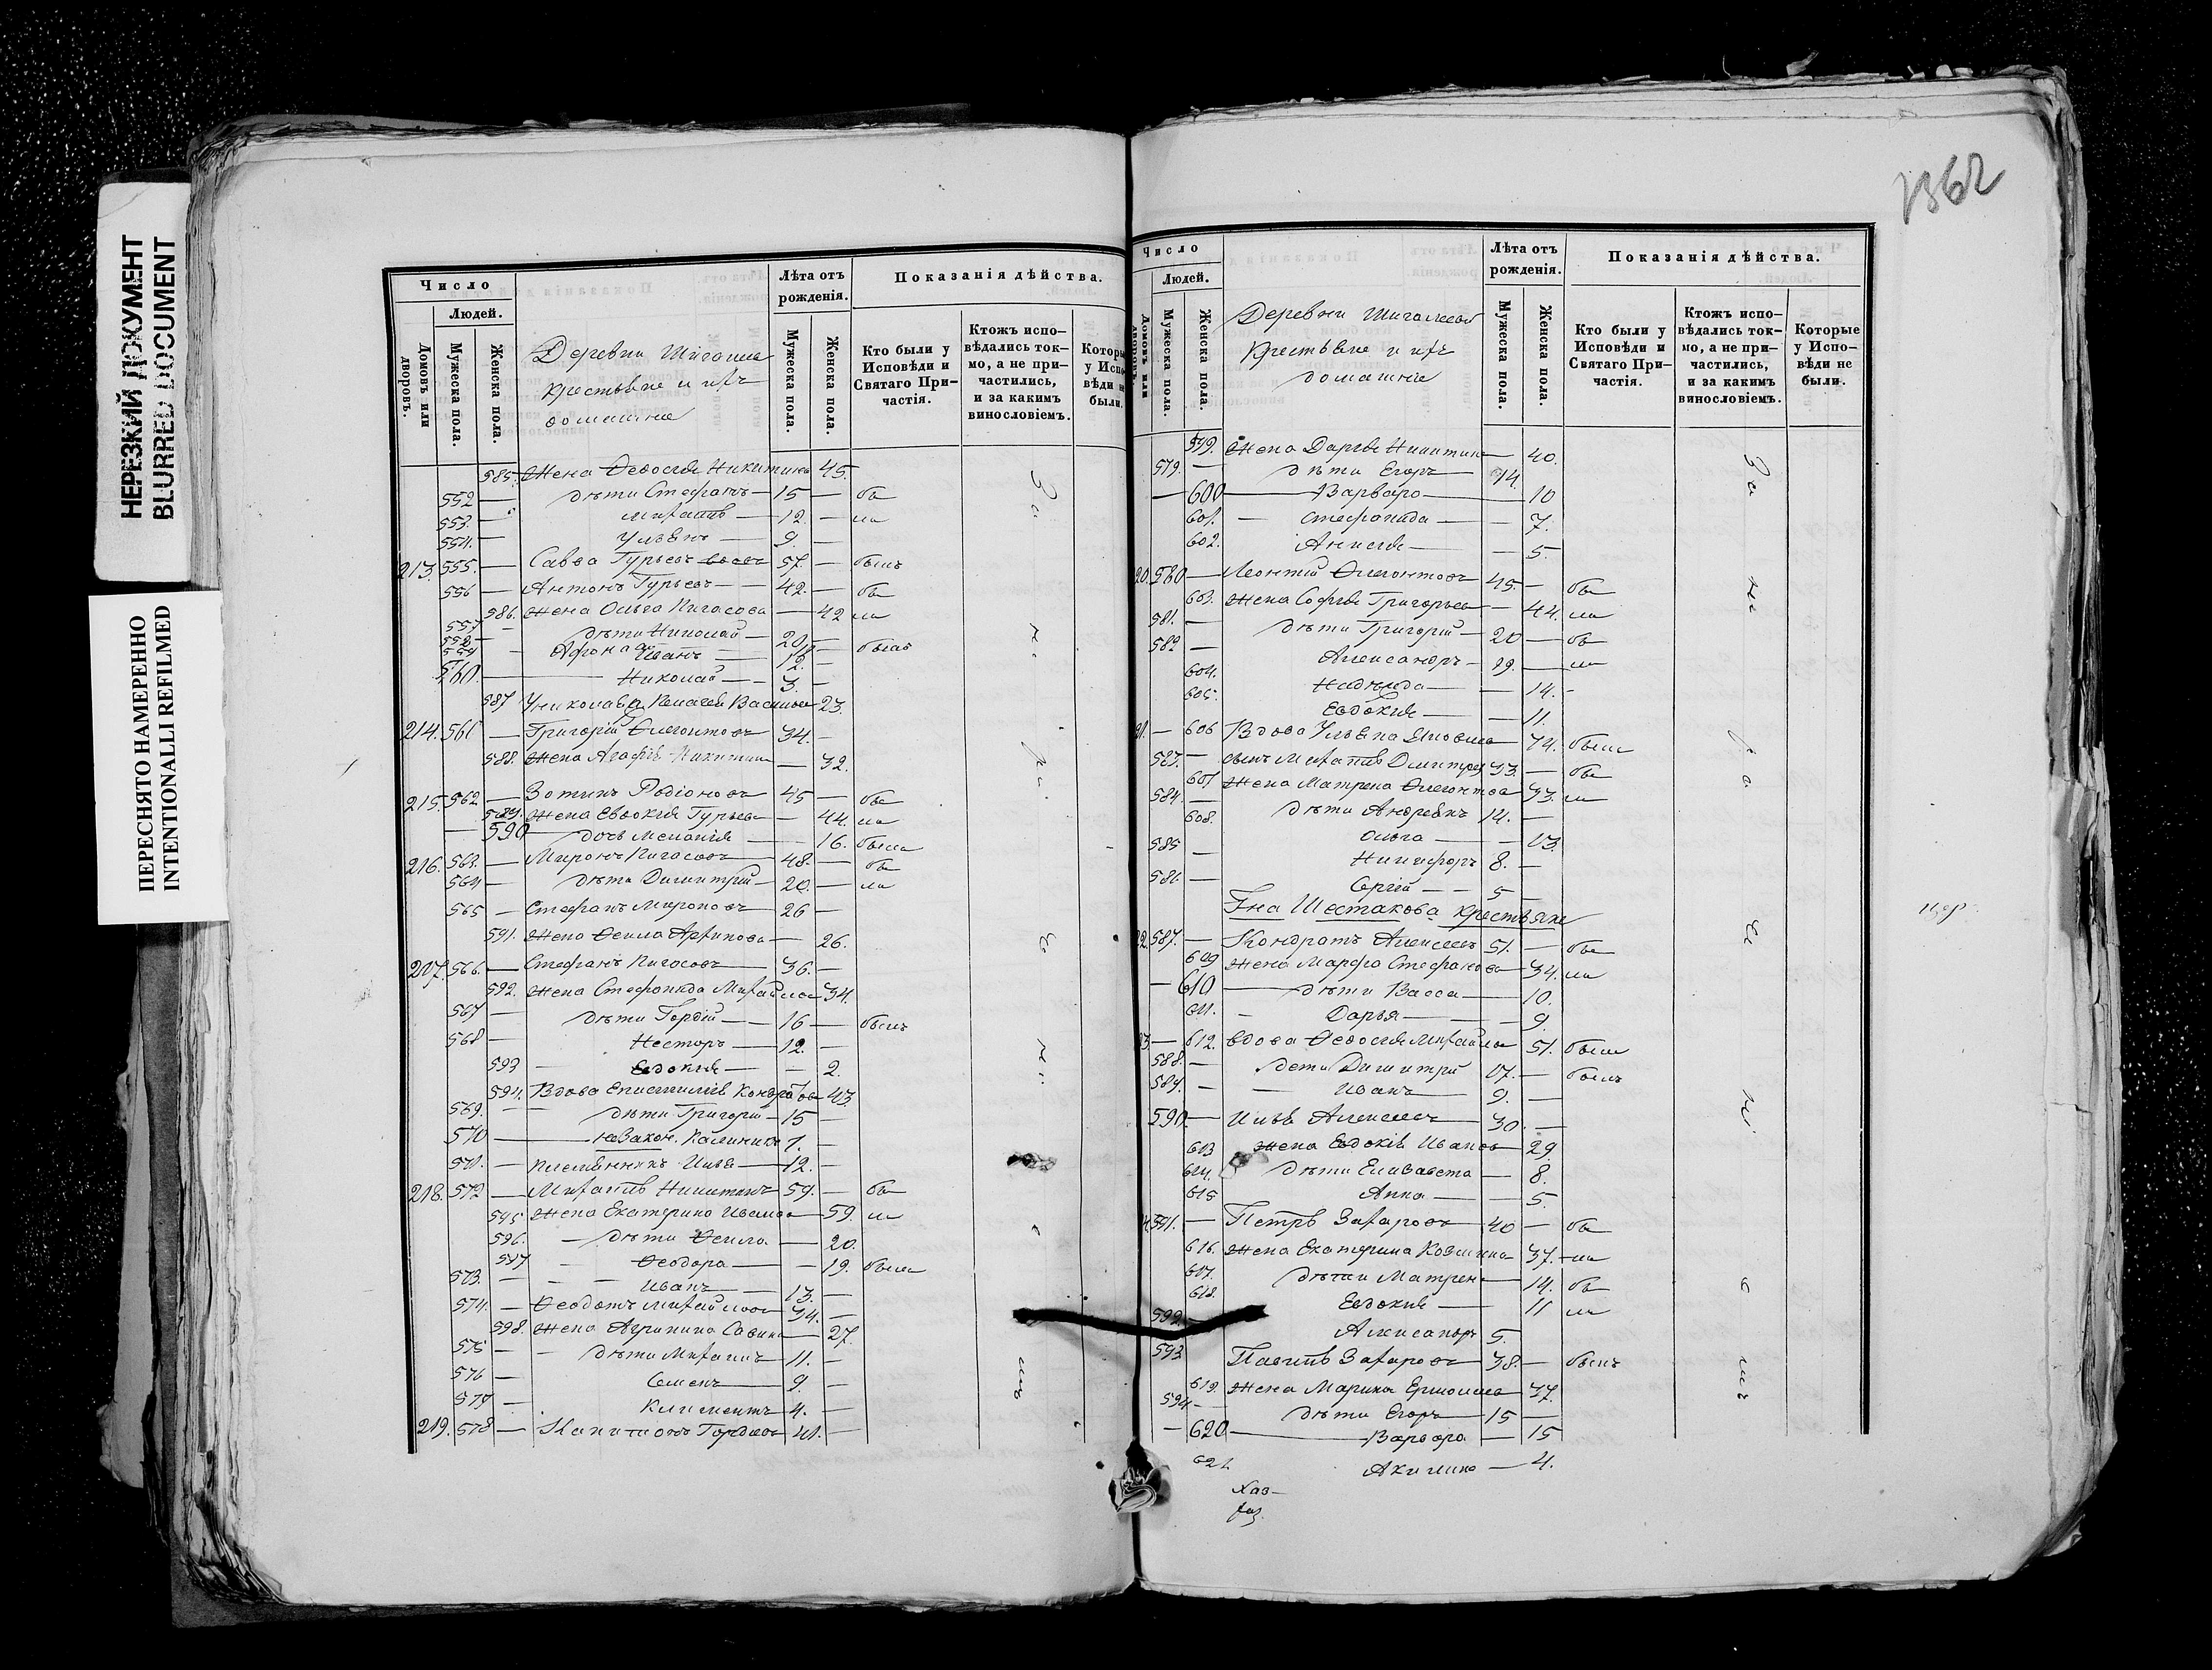 НЕРЕЗКИЙ ДОКУМЕНТ
BLURRED DOCUMENT
ПЕРЕСНЯТО НАМЕРЕННО
INTENTIONALLI REFILMED
Число
Людей.
Домовъ или дворовъ.
Мужеска пола.
Женска пола.
Деревни
крестьяне и ихъ
домашніе
Лѣта отъ рожденія.
Мужеска пола.
Женска пола.
Показанія дѣйства.
Кто были у Исповѣди и Святаго Причастія.
Ктожъ исповѣдались токмо, а не причастились, и за какимъ винословіемъ.
Которые у Исповѣди не были.
585. Жена Ѳеодосія Никитина 45.
552 — дѣти Стефанъ — 15 — бы
553. — Михаилъ — 12. — ли
554. — Ульянъ — 9. —
213. 555. — Савва Гурьевъ 57. — былъ
556 — Антонъ Гурьевъ — 42. — бы
586. Жена Ольга Пигасова — 42 ли
557 — дѣти Николай — 20
Иванъ — 12. —
560. — Николай — 3. —
587 Васильева 23.
214. 561 — Григорій 34. —
588. Жена Агафія Никитина — 32.
215. 562 — Зотикъ Родіоновъ 45 — бы
589. Жена Евдокія Гурьева — 44. ли
590 — дочь Меланія — 16. была
216. 563. — Миронъ Пигасовъ 48. — бы
564 — дѣти Димитрій — 20. — ли
565 — Стефанъ Мироновъ 26 —
591. Жена Ѳекла Архипова — 26.
217. 566. — Стефанъ Пигасовъ 36. —
592. Жена Стефанида Михайлова 34.
567 — дѣти Гордій — 16 — былъ
568 — Несторъ — 12. —
593 — Евдокія — 2.
594. Вдова Кондратова 43.
569. — дѣти Григорій — 15 —
570 — незакон. 7. —
571. — племянникъ Илья — 12. —
218. 572 — Михаилъ Никитинъ 59. — бы
595 Жена Екатерина Иванова — 59. ли
596. — дѣти Ѳекла — 20.
597 — Ѳеодора — 19. была
573. — Иванъ — 13. —
574. — Ѳеодотъ Михайловъ 34. —
598. Жена Агрипина Савина 27.
575 — дѣти Михаилъ 11. —
576 — Семенъ 9. —
577 — Климентъ 4. —
219. 578 — Капитонъ Гордіевъ 41. —
За
не
ра
че
ні
е
мъ
1362
Число
Людей.
Домовъ или дворовъ
Мужеска пола.
Женска пола.
Деревни
крестьяне и ихъ
домашніе
Лѣта отъ рожденія.
Мужеска пола.
Женска пола.
Показанія дѣйства.
Кто были у Исповѣди и Святаго Причастія.
Ктожъ исповѣдались токмо, а не причастились, и за какимъ винословіемъ.
Которые у Исповѣди не были.
599. Жена Дарья Никитина — 40.
579. — дѣти Егоръ — 14.
— 600 — Варвара — 10
601. — Стефанида — 7.
602. Анисія — 5.
20. 580 — Леонтій 45. — бы
603. Жена Софія Григорьева — 44. ли
581. — дѣти Григорій — 20 — бы
582 — Александръ — 19. — ли
604. Надежда — 14. —
605. Евдокія — 11.
21. — 606 Вдова Ульяна 74. была
583. — сынъ Михаилъ 33. — бы
607 Жена Матрена 33. ли
584. — дѣти Андреянъ 14. —
608. Ольга — 13.
585 — Никифоръ 8. —
586. — Сергій — 5
Шестакова крестьяне
22. 587. — Кондратъ Алексеевъ 51. — бы
609 Жена Марфа Стефанова 34. ли
— 610 — дѣти Васса — 10.
611. — Дарья — 9.
23. — 612. вдова Ѳеодосія Михайлова 51. была
588. — дети Димитрій 17. — былъ
589. — Иванъ — 9. —
590 — Илья Алексеевъ 30. —
613 жена Евдокія Иванова 29.
614. дѣти Елизавета — 8.
615 Анна — 5.
24. 591. — Петръ Захаровъ 40 — бы
616. Жена Екатерина Козмина 37. — ли
617. дѣти Матрена 14. бы
618. Евдокія — 11 ли
592. — Александръ 5.
593 Павилъ Захаровъ — 38. — былъ
619. Жена Марина 37.
594 — дѣти Егоръ — 15 —
— 620 — Варвара — 15
621. Акилина — 4.
За
не
ра
че
ні
е
мъ